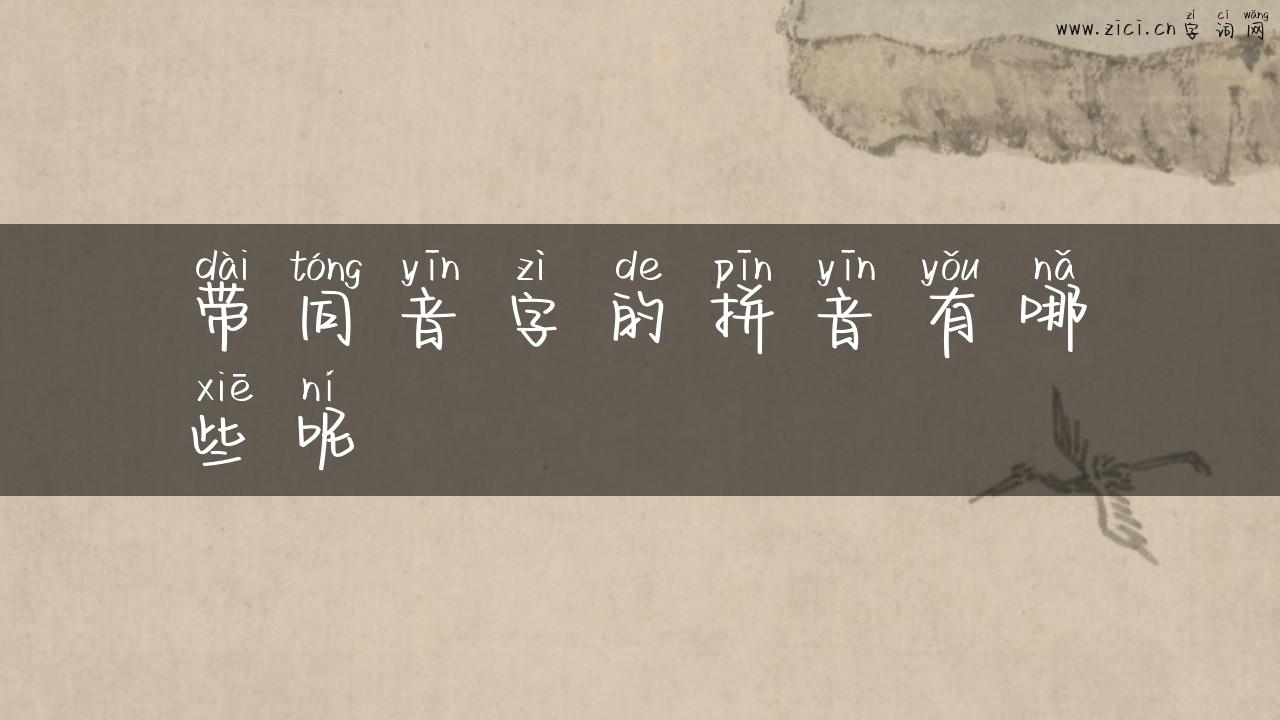 zì cí wǎng
www.zici.cn 字词网
dài tóng yīn zì de pīn yīn yǒu nǎ
带同音字的拼音有哪
xiē ní
些呢